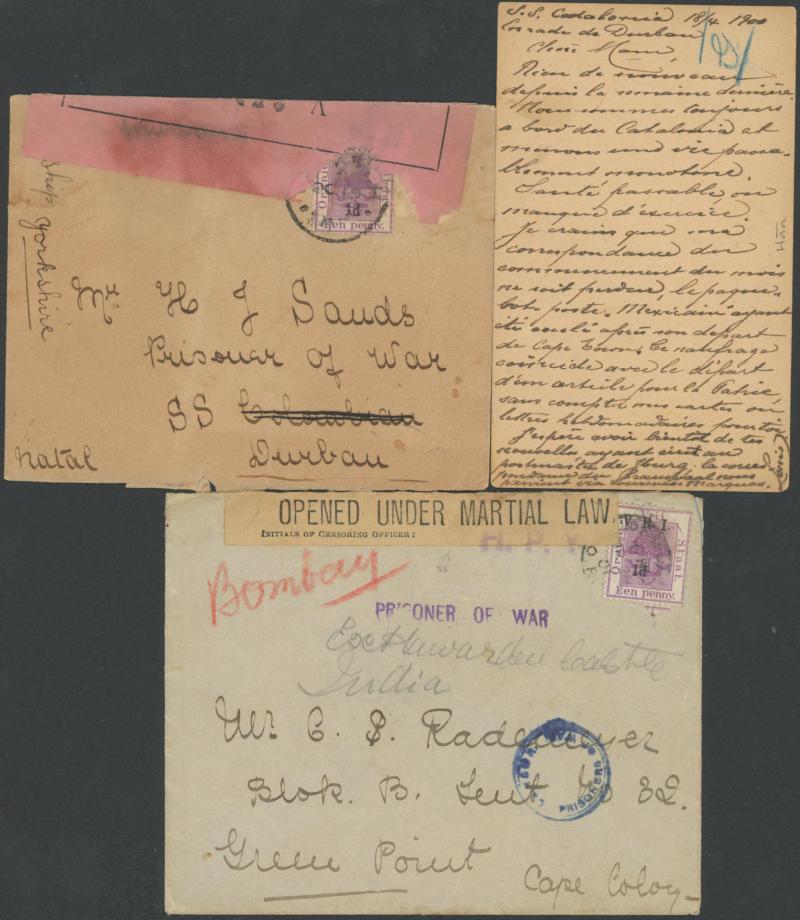 V
1d
Een penny.
Ship Yorkshire
Mr. H J Sands
Prisoner of War
SS Colombian
Natal Durban
S.S. Catalonia 18/4 1900
en rade de Durban
Rien de nouveau
depuis la semaine dernière.
Nous sommes toujours
a bord du Catalonia et
menons une vie passa-
blement monotone.
Santé passable ou
manque d'exercice.
Je crains que ma
correspondance du
commencement du mois
ne soit perdue, le paque-
bot poste Mexicain ayant
été coulé après son départ
de Cape Town. Ce naufrage
coïncide avec le départ
d'un article pour la Patrie
sans compter mes cartes ou
lettres hebdomadaires pour toi
J'espère avoir bientot de tes
nouvelles ayant écrit au
Louis
OPENED UNDER MARTIAL LAW.
INITIALS OF CENSORING OFFICER:
V.R.I.
1d
Staat.
Een penny.
Bombay
PRISONER OF WAR
Hawarden Castle
India
Mr C. S. Rademeyer
Blok. B. Tent No 32.
Green Point
Cape Colony
PRISONERS